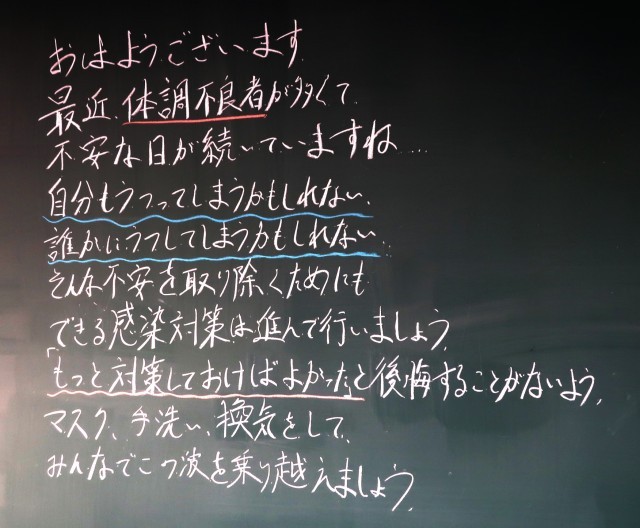 おはようございます。
最近、体調不良者が多くて
不安な日が続いていますね…
自分もうつってしまうかもしれない。
誰かにうつしてしまうかもしれない。
そんな不安を取り除くためにも
できる感染対策は進んで行いましょう。
「もっと対策しておけばよかった」と後悔することがないよう、
マスク、手洗い、換気をして、
みんなでこの波を乗り越えましょう。